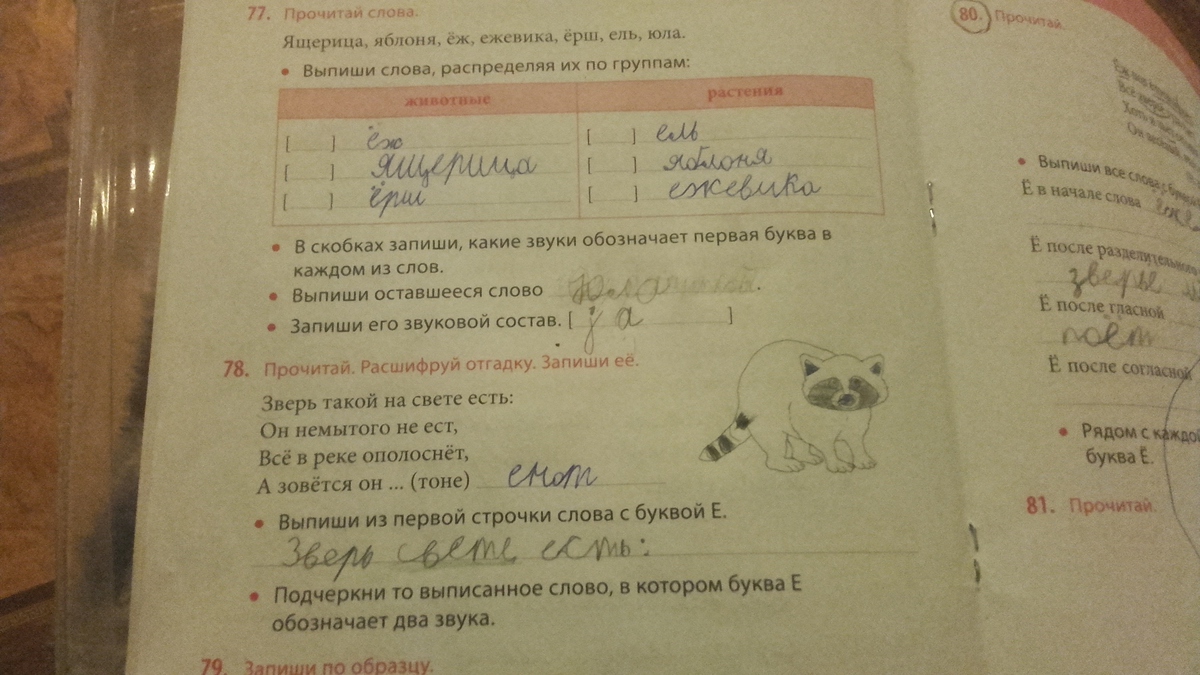 77. Прочитай слова.
Ящерица, яблоня, ёж, ежевика, ёрш, ель, юла.
• Выпиши слова, распределяя их по группам:
животные растения
[ ] ёж [ ] ель
[ ] ящерица [ ] яблоня
[ ] ёрш [ ] ежевика
• В скобках запиши, какие звуки обозначает первая буква в
каждом из слов.
• Выпиши оставшееся слово юла.
• Запиши его звуковой состав. [ у а ]
78. Прочитай. Расшифруй отгадку. Запиши её.
Зверь такой на свете есть:
Он немытого не ест,
Всё в реке ополоснёт,
А зовётся он ... (тоне) енот
• Выпиши из первой строчки слова с буквой Е.
Зверь свете есть:
• Подчеркни то выписанное слово, в котором буква Е
обозначает два звука.
79. Запиши по образцу.
80. Прочитай.
Всё
Он
• Выпиши все слова с
Ё в начале слова
Ё после разделительного
зверьё
Ё после гласной
поёт
Ё после согласной
• Рядом с каждой
буква Ё.
81. Прочитай.